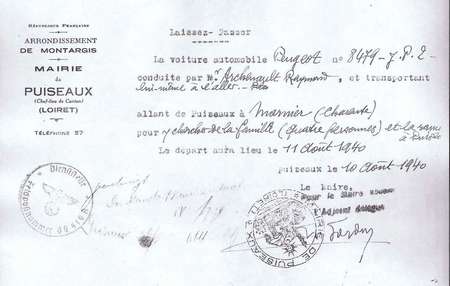 RÉPUBLIQUE FRANÇAISE
ARRONDISSEMENT
DE MONTARGIS
MAIRIE
de
PUISEAUX
(Chef-lieu de Canton)
(LOIRET)
TÉLÉPHONE 57
Laissez-Passer
La voiture automobile Peugeot n° 8479-J.P.2
conduite par Mr Archenault Raymond, et transportant
lui-même à l'aller
allant de Puiseaux à Marnier (Charente)
pour y chercher de la famille (quatre personnes) et la ramener
à Puiseaux
Le départ aura lieu le 11 Août 1940
Puiseaux le 10 Août 1940
Le Maire,
Pour le Maire
l'Adjoint délégué
DE PUISEAUX
Dienststelle
Feldpostnummer